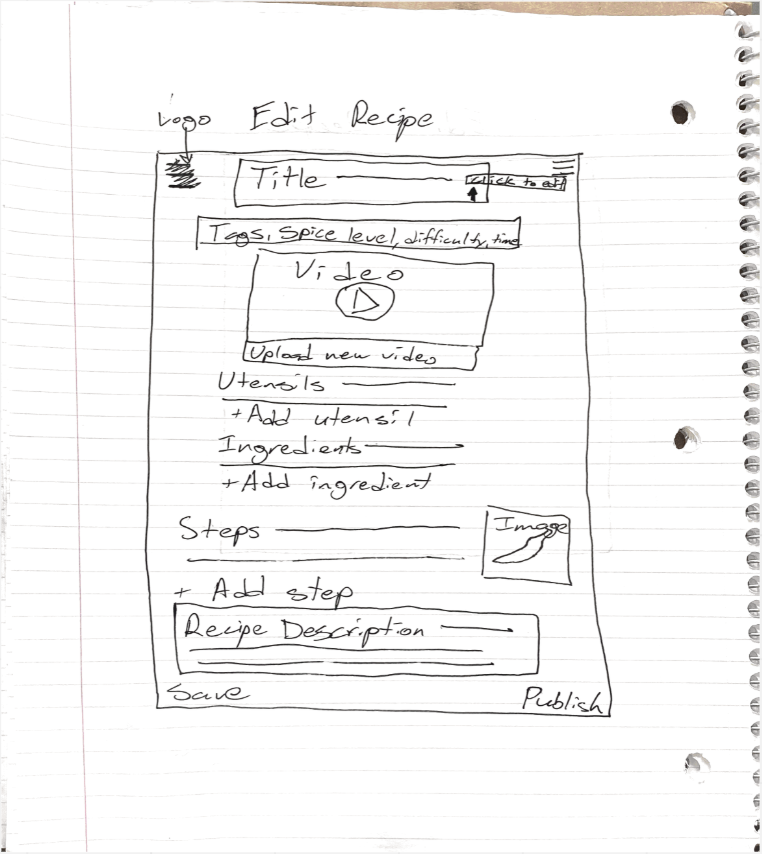 Logo Edit Recipe
Title
Click to edit
Tags, Spice level, difficulty, time
Video
Upload new video
Utensils
+Add utensil
Ingredients
+Add ingredient
Steps
Image
+ Add step
Recipe Description
Save
Publish